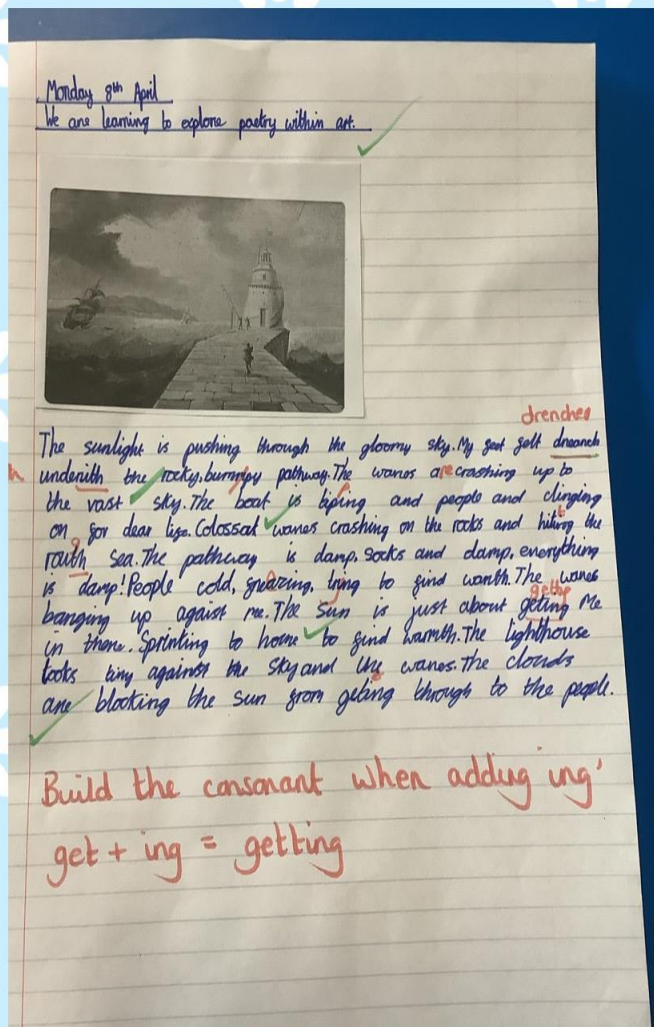 Monday 8th April
We are learning to explore poetry within art.
drenched
The sunlight is pushing through the gloomy sky. My feet felt dreanch
underiith the rocky, bummpy pathway. The waves are crashing up to
the vast sky. The boat is tiping and people and clinging
on for dear life. Colossal waves crashing on the rocks and hitting the
routh sea. The pathway is damp, socks and damp, everything
is damp! People cold, freazing, trying to find wanth. The waves
getting
banging up agaist me. The Sun is just about geting Me
in there. Sprinting to home to find warmth. The lighthouse
looks tiny against the sky and the waves. The clouds
are blocking the sun from geting through to the people.
Build the consonant when adding 'ing'
get + ing = getting